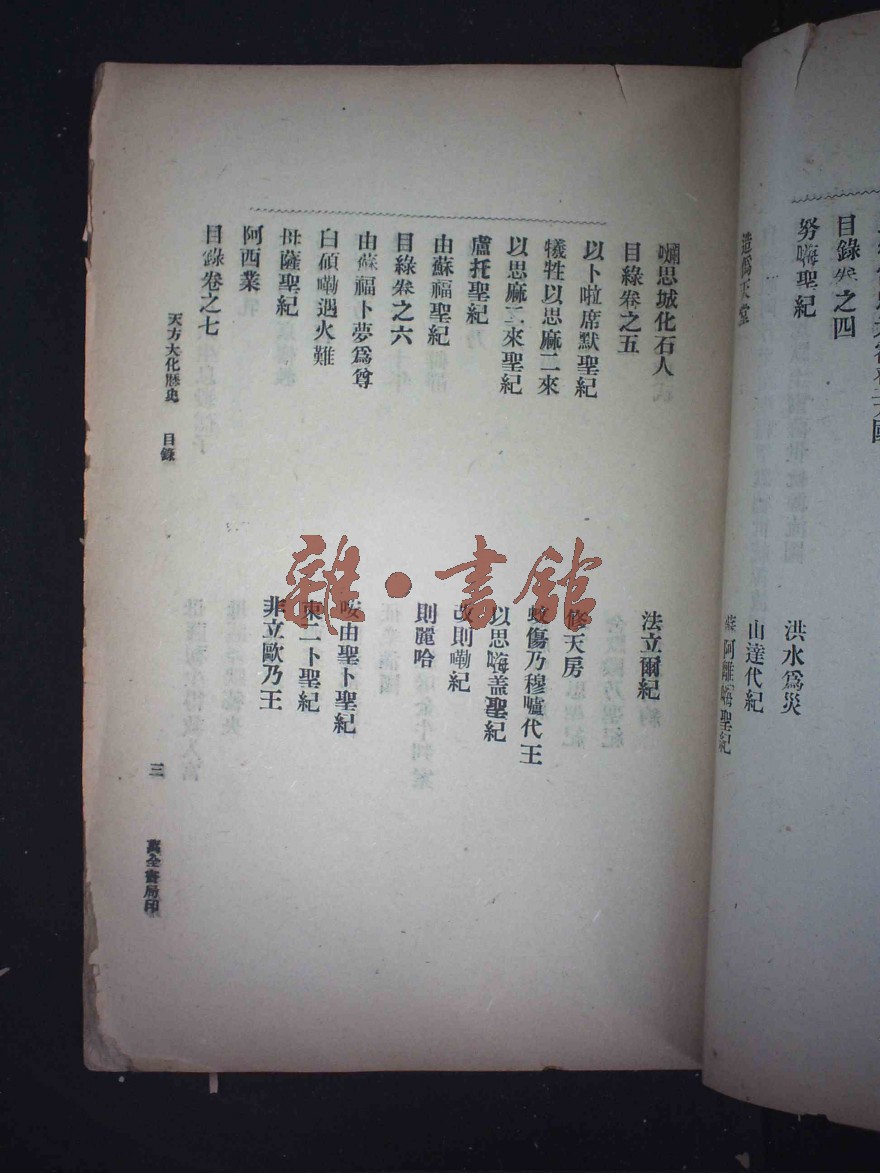 目錄卷之四
努㖶聖紀
洪水為災
造僞天堂
山達代紀
阿離㖶聖紀
爛思城化石人
法立爾紀
目錄卷之五
以卜啦席默聖紀
修天房
犧牲以思麻二來
蚊傷乃穆嚧代王
以思麻二來聖紀
以思㖶盖聖紀
盧托聖紀
改則嘞紀
由蘇福聖紀
則麗哈
目錄卷之六
由蘇福卜夢為尊
咹由聖卜聖紀
白碩嘞遇火難
束二卜聖紀
母薩聖紀
非立歐乃王
阿西業
目錄卷之七
天方大化歷史 目錄
三
萬全書局印
雜·書館